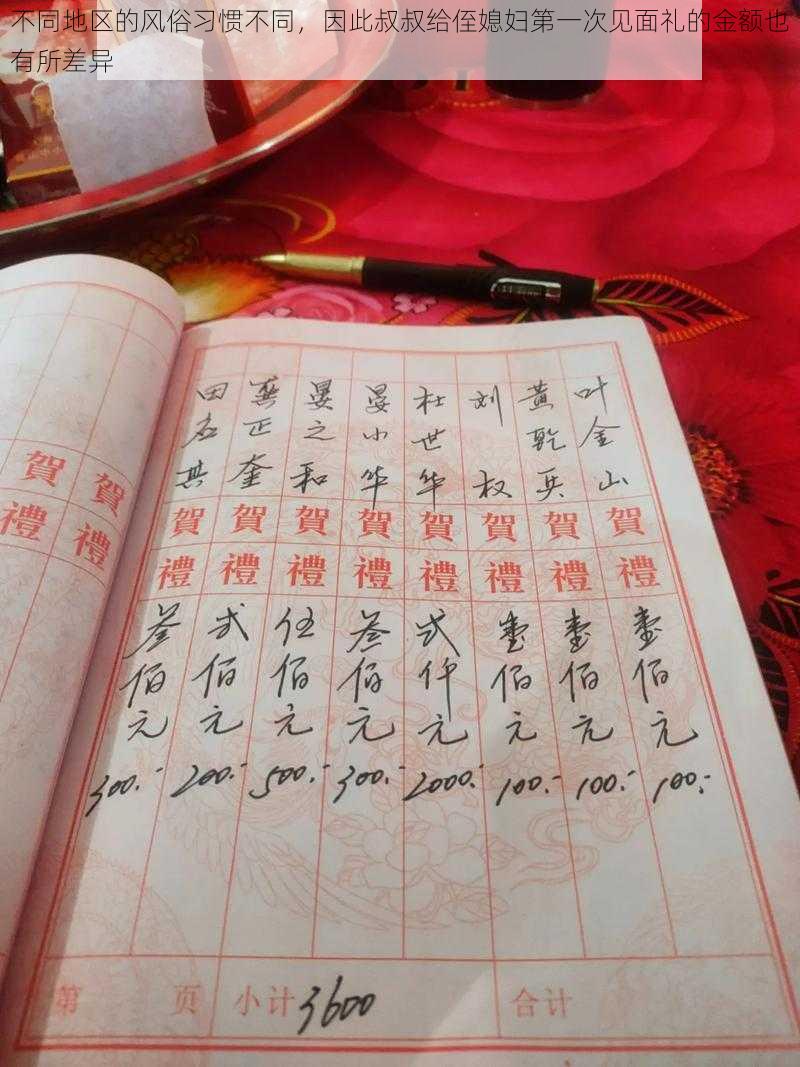 不同地区的风俗习惯不同，因此叔叔给侄媳妇第一次见面礼的金额也
有所差异
叶金山 賀禮 壹佰元 100.-
黄乾兵 賀禮 壹佰元 100.-
刘权 賀禮 壹佰元 100.-
杜世华 賀禮 弍仟元 2000.-
晏小华 賀禮 叁佰元 300.-
晏之和 賀禮 伍佰元 500.-
龚正奎 賀禮 弍佰元 200.-
田右其 賀禮 叁佰元 300.-
賀禮
賀禮
第 页 小计 3600 合计